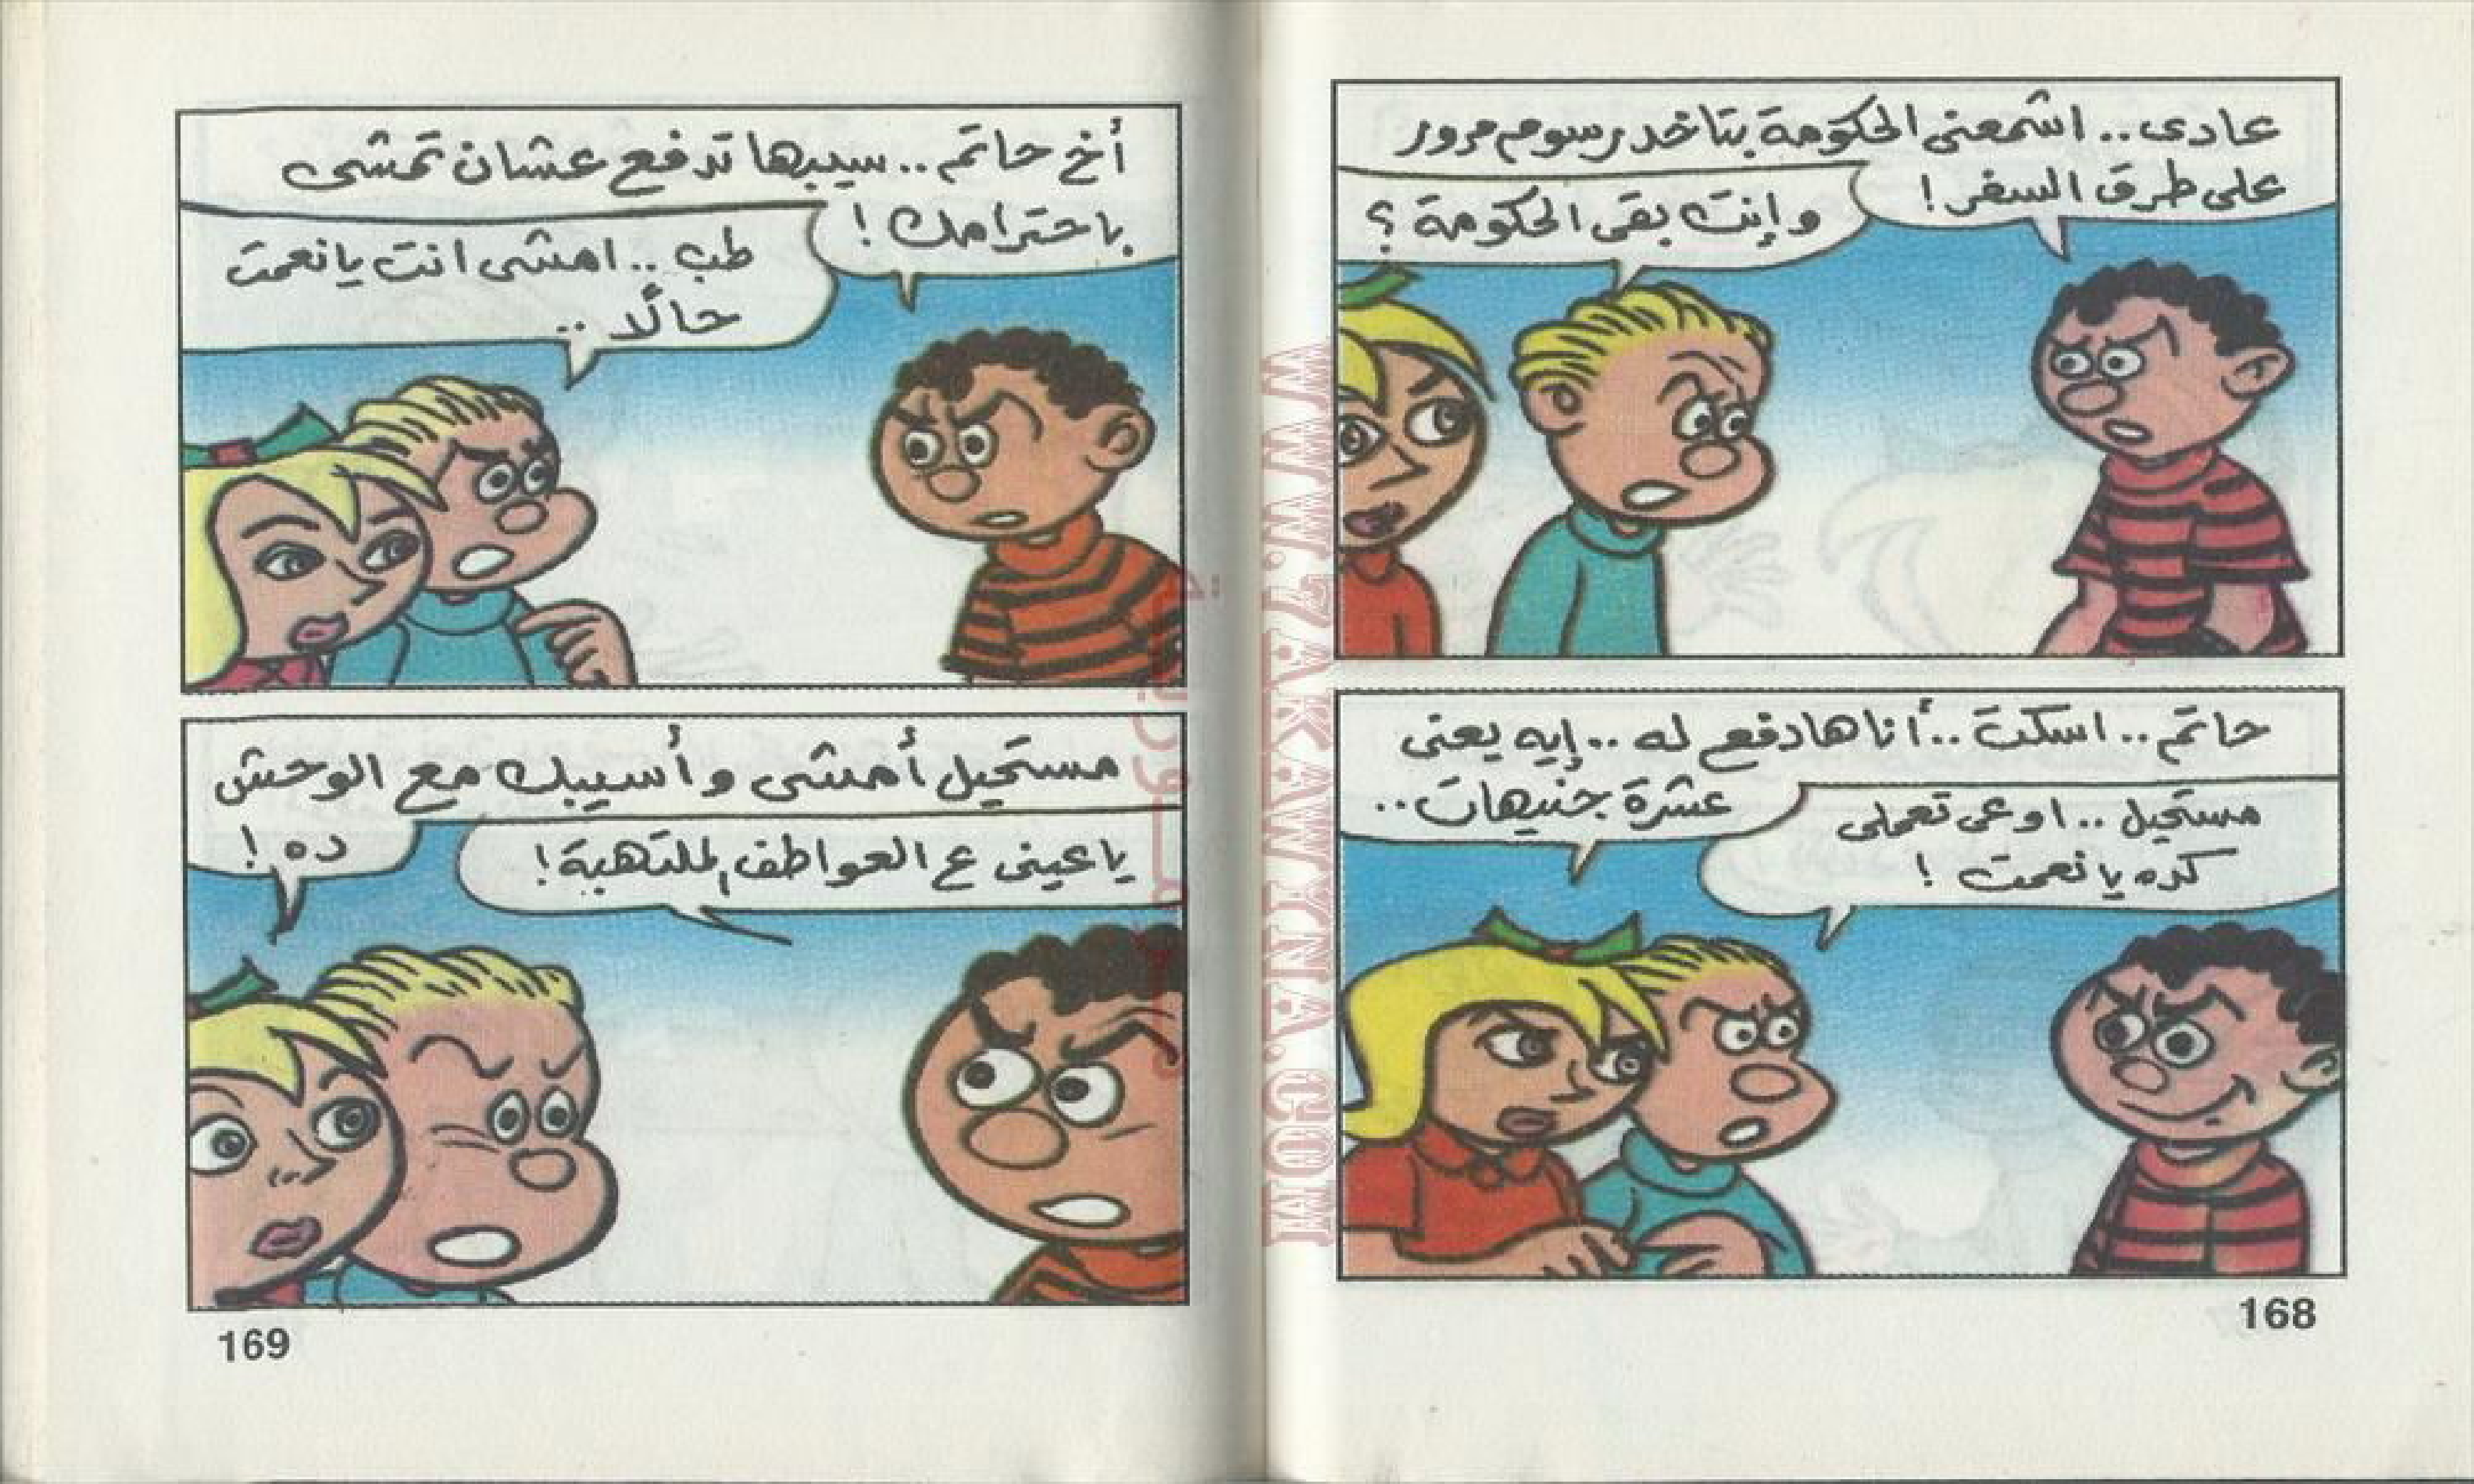 عادى.. اشمعنى الحكومة بتاخد رسوم مرور
على طرق السفر!
وإنت بقى الحكومة؟
حاتم.. اسكت.. أنا هادفع له.. إيه يعنى
عشرة جنيهات..
مستحيل.. اوعى تعملى
كده يا نعمت!
168
أخ حاتم.. سيبها تدفع عشان تمشى
باحترامك!
طب.. امشى انت يا نعمت
حالًا..
مستحيل أمشى وأسيبك مع الوحش
ده!
يا عينى ع العواطف الملتهبة!
169
WWW.ZAKAWTNA.COM